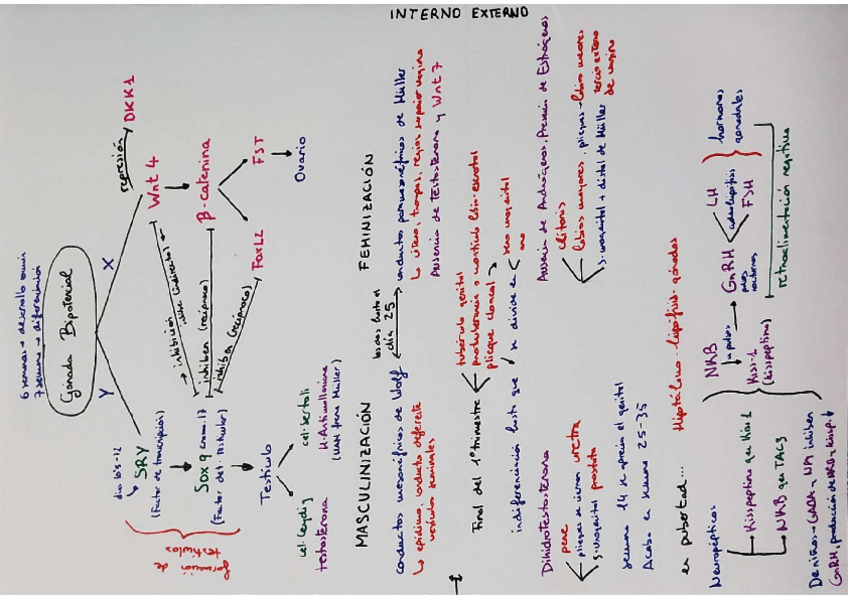 INTERNO EXTERNO
6 semanas → desarrollo común
7 semana → diferenciación
Gónada Bipotencial
Y
X
día 10.5-12
SRY
(Factor de transcripción)
Sox9 crom.17
(Factor det. testicular)
formación de testículos
Testículo
cél. Leydig
testosterona
cél. Sertoli
H. Antimulleriana
(MAH frena Müller)
represión
DKK1
Wnt4
β-catenina
FoxL2
FST
Ovario
→ inhibición
inhiben (recíproca)
inhiben (recíproca)
MASCULINIZACIÓN
FEMINIZACIÓN
conductos mesonéfricos de Wolf
↳ epidídimo, conducto deferente
vesículas seminales
día 25
conductos paramesonéfricos de Müller
↳ útero, trompas, región superior vagina
Ausencia de Testosterona y Wnt7
Final del 1º trimestre
tubérculo genital
pliegue cloacal
indiferenciación hasta que
se divide en
seno urogenital
ano
Dihidrotestosterona
pene
pliegues se cierran uretra
s. urogenital próstata
semana 14 se aprecia el genital
Acaba en semana 25-35
Ausencia de Andrógenos, Presencia de Estrógenos
clítoris
labios mayores, pliegues → labios menores
s. urogenital + distal de Müller
tercio externo
de vagina
en pubertad...
Hipotálamo - hipófisis - gónadas
Neuropépticos
Kisspeptina gen Kiss1
NKB gen TAC3
NKB
Kiss-1
(kisspeptina)
GnRH
LH
FSH
hormonas
gonadales
retroalimentación negativa
De niños → GABA y NPY inhiben
GnRH, producción de NKB y kissp. ↓